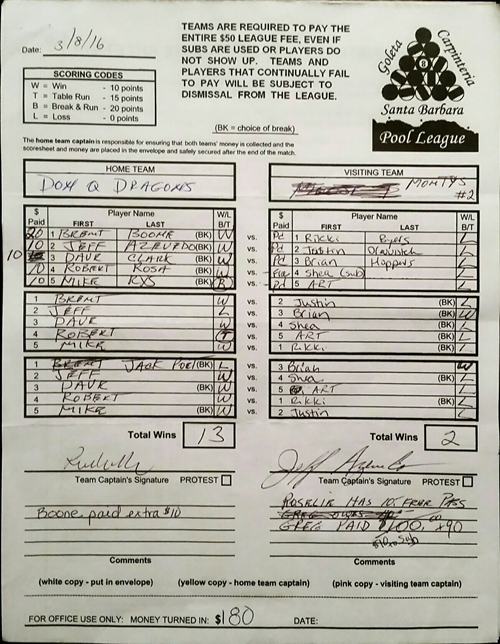 Date: 3/8/16
TEAMS ARE REQUIRED TO PAY THE
ENTIRE $50 LEAGUE FEE, EVEN IF
SUBS ARE USED OR PLAYERS DO
NOT SHOW UP. TEAMS AND
PLAYERS THAT CONTINUALLY FAIL
TO PAY WILL BE SUBJECT TO
DISMISSAL FROM THE LEAGUE.
Goleta Carpinteria
8
Santa Barbara
Pool League
SCORING CODES
W = Win - 10 points
T = Table Run - 15 points
B = Break & Run - 20 points
L = Loss - 0 points
(BK = choice of break)
The home team captain is responsible for ensuring that both teams' money is collected and the
scoresheet and money are placed in the envelope and safely secured after the end of the match.
HOME TEAM
DON Q DRAGONS
VISITING TEAM
MONTYS #2
$ Paid Player Name FIRST LAST W/L B/T
$ Paid Player Name FIRST LAST W/L B/T
20 1 BRENT BOONE (BK) W vs. Pd 1 Rikki L
10 2 JEFF AZEVEDO (BK) W vs. Pd 2 Justin L
10 3 DAVE CLARK (BK) W vs. Pd 3 Brian Hoppers L
10 4 ROBERT ROSA (BK) W vs. 4 Shea (sub) L
10 5 MIKE KYS (BK) B vs. Pd 5 ART L
1 BRENT W vs. 2 Justin (BK) L
2 JEFF L vs. 3 Brian (BK) W
3 DAVE W vs. 4 Shea (BK) L
4 ROBERT vs. 5 ART (BK) L
5 MIKE W vs. 1 Rikki (BK) L
1 JACK (BK) L vs. 3 Brian W
2 JEFF W vs. 4 Shea (BK) L
3 DAVE (BK) W vs. 5 ART L
4 ROBERT W vs. 1 Rikki (BK) L
5 MIKE (BK) W vs. 2 Justin L
Total Wins 13
Total Wins 2
Team Captain's Signature PROTEST
Team Captain's Signature PROTEST
Boone paid extra $10
ROSELIE HAS 10
GREG PAID $100.00 x90
Comments
Comments
(white copy - put in envelope) (yellow copy - home team captain) (pink copy - visiting team captain)
FOR OFFICE USE ONLY: MONEY TURNED IN: $180 DATE: